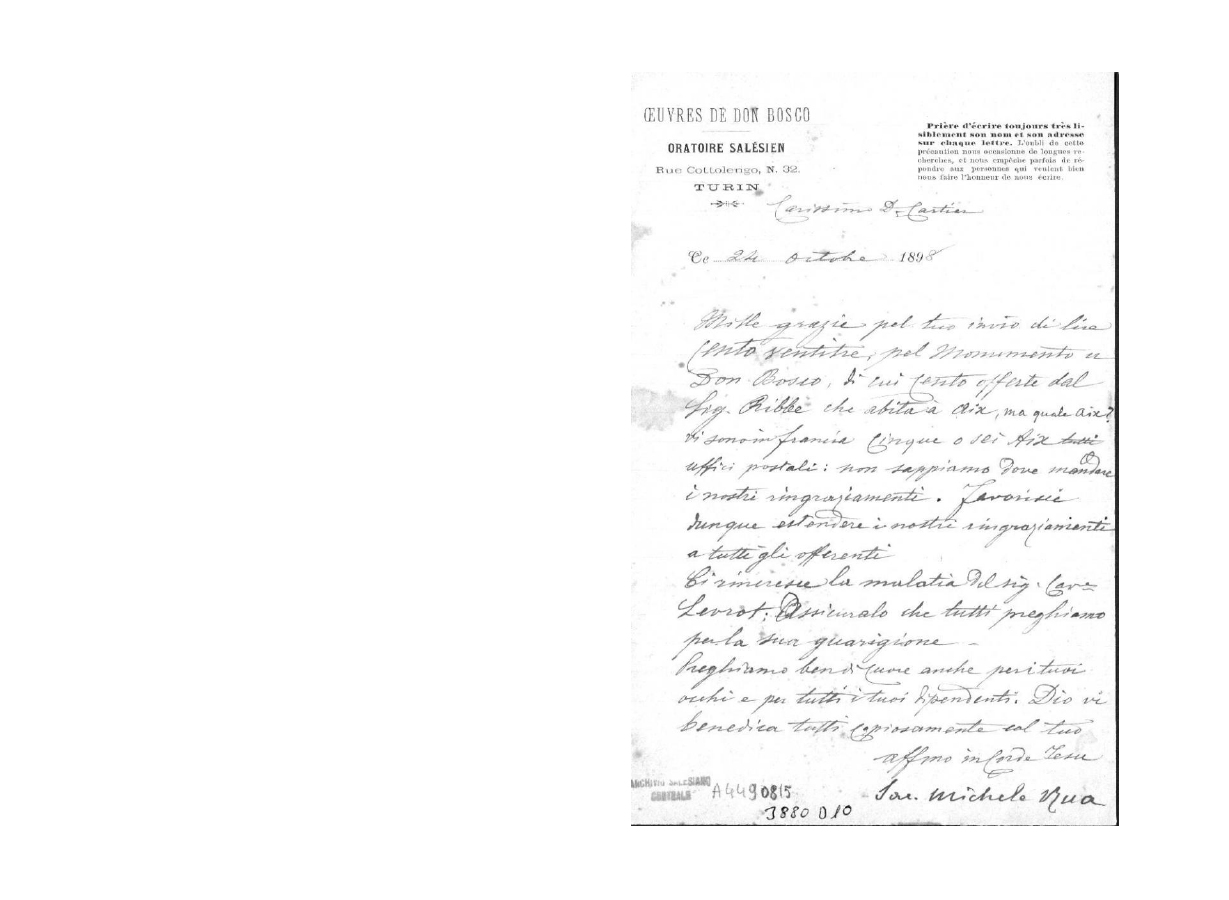 ŒUVRES DE DON BOSCO
ORATOIRE SALÉSIEN
Rue Cottolengo, N. 32.
TURIN
Prière d'écrire toujours très li-
siblement son nom et son adresse
sur chaque lettre. L'oubli de cette
précaution nous occasionne de longues re-
cherches, et nous empêche parfois de ré-
pondre aux personnes qui veulent bien
nous faire l'honneur de nous écrire.
Carissimo D. Cartier
Ce 24 octobre 1898
Mille grazie pel tuo invio di lire
cento ventitre, pel Monumento a
Don Bosco, di cui cento offerte dal
Sig. Ribbe che abita a Aix, ma quale Aix?
vi sono in francia cinque o sei Aix tutti
uffici postali: non sappiamo dove mandare
i nostri ringraziamenti. Favorisci
dunque estendere i nostri ringraziamenti
a tutti gli offerenti
Ci rincresce la malatia del sig. Cav.
Levrot: Assicuralo che tutti preghiamo
per la sua guarigione -
Preghiamo ben di cuore anche per i tuoi
occhi e per tutti i tuoi dipendenti. Dio vi
benedica tutti copiosamente col tuo
affmo in Corde Jesu
Sac. Michele Rua
ARCHIVIO SALESIANO
CENTRALE
A4490815
3880 D10